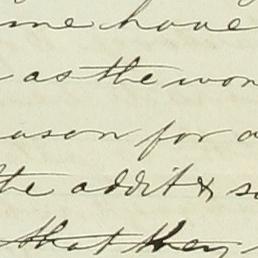 me have
as the wor
eason for a
the addit & s
that they